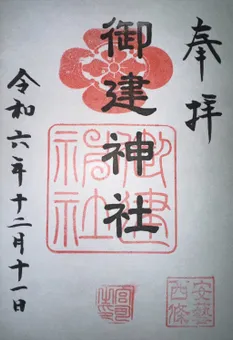 奉拝
御建神社
御建神社
安藝西條
令和六年十二月十一日